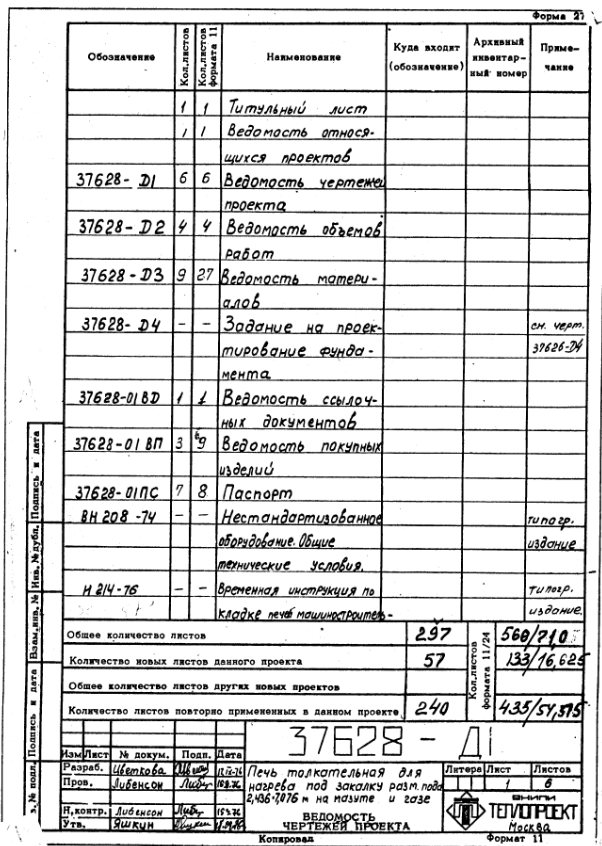 Форма 27
Обозначение Кол.листов Кол.листов формата 11 Наименование Куда входит (обозначение) Архивный инвентарный номер Примечание
1 1 Титульный лист
1 1 Ведомость относя-
щихся проектов
37628- Д1 6 6 Ведомость чертежей
проекта
37628- Д2 4 4 Ведомость объемов
работ
37628- Д3 9 27 Ведомость матери-
алов
37628- Д4 – – Задание на проек- см. черт.
тирование фунда- 37626-Д4
мента
37628-01 ВД 1 1 Ведомость ссылоч-
ных документов
37628-01 ВП 3 9 Ведомость покупных
изделий
37628-01ПС 7 8 Паспорт
ВН 208-74 – – Нестандартизованное типогр.
оборудование. Общие издание
технические условия.
И 214-76 – – Временная инструкция по типогр.
кладке печей машиностроитель- издание.
Общее количество листов 297 Кол.листов формата 11/24 568/71,0
Количество новых листов данного проекта 57 133/16,625
Общее количество листов других новых проектов
Количество листов повторно примененных в данном проекте 240 435/54,375
37628 - Д1
Изм Лист № докум. Подп. Дата
Разраб. Цветкова
Пров. Либенсон
Н.контр. Либенсон
Утв. Яшкин
Печь толкательная для
нагрева под закалку разм. пода
2,436×7,076 м на мазуте и газе
ВЕДОМОСТЬ
ЧЕРТЕЖЕЙ ПРОЕКТА
Литера Лист Листов
1 6
ВНИПИ
ТЕПЛОПРОЕКТ
Москва
Копировал Формат 11
Подпись и дата
Инв. № дубл.
Взам.инв. №
Подпись и дата
№ подл.